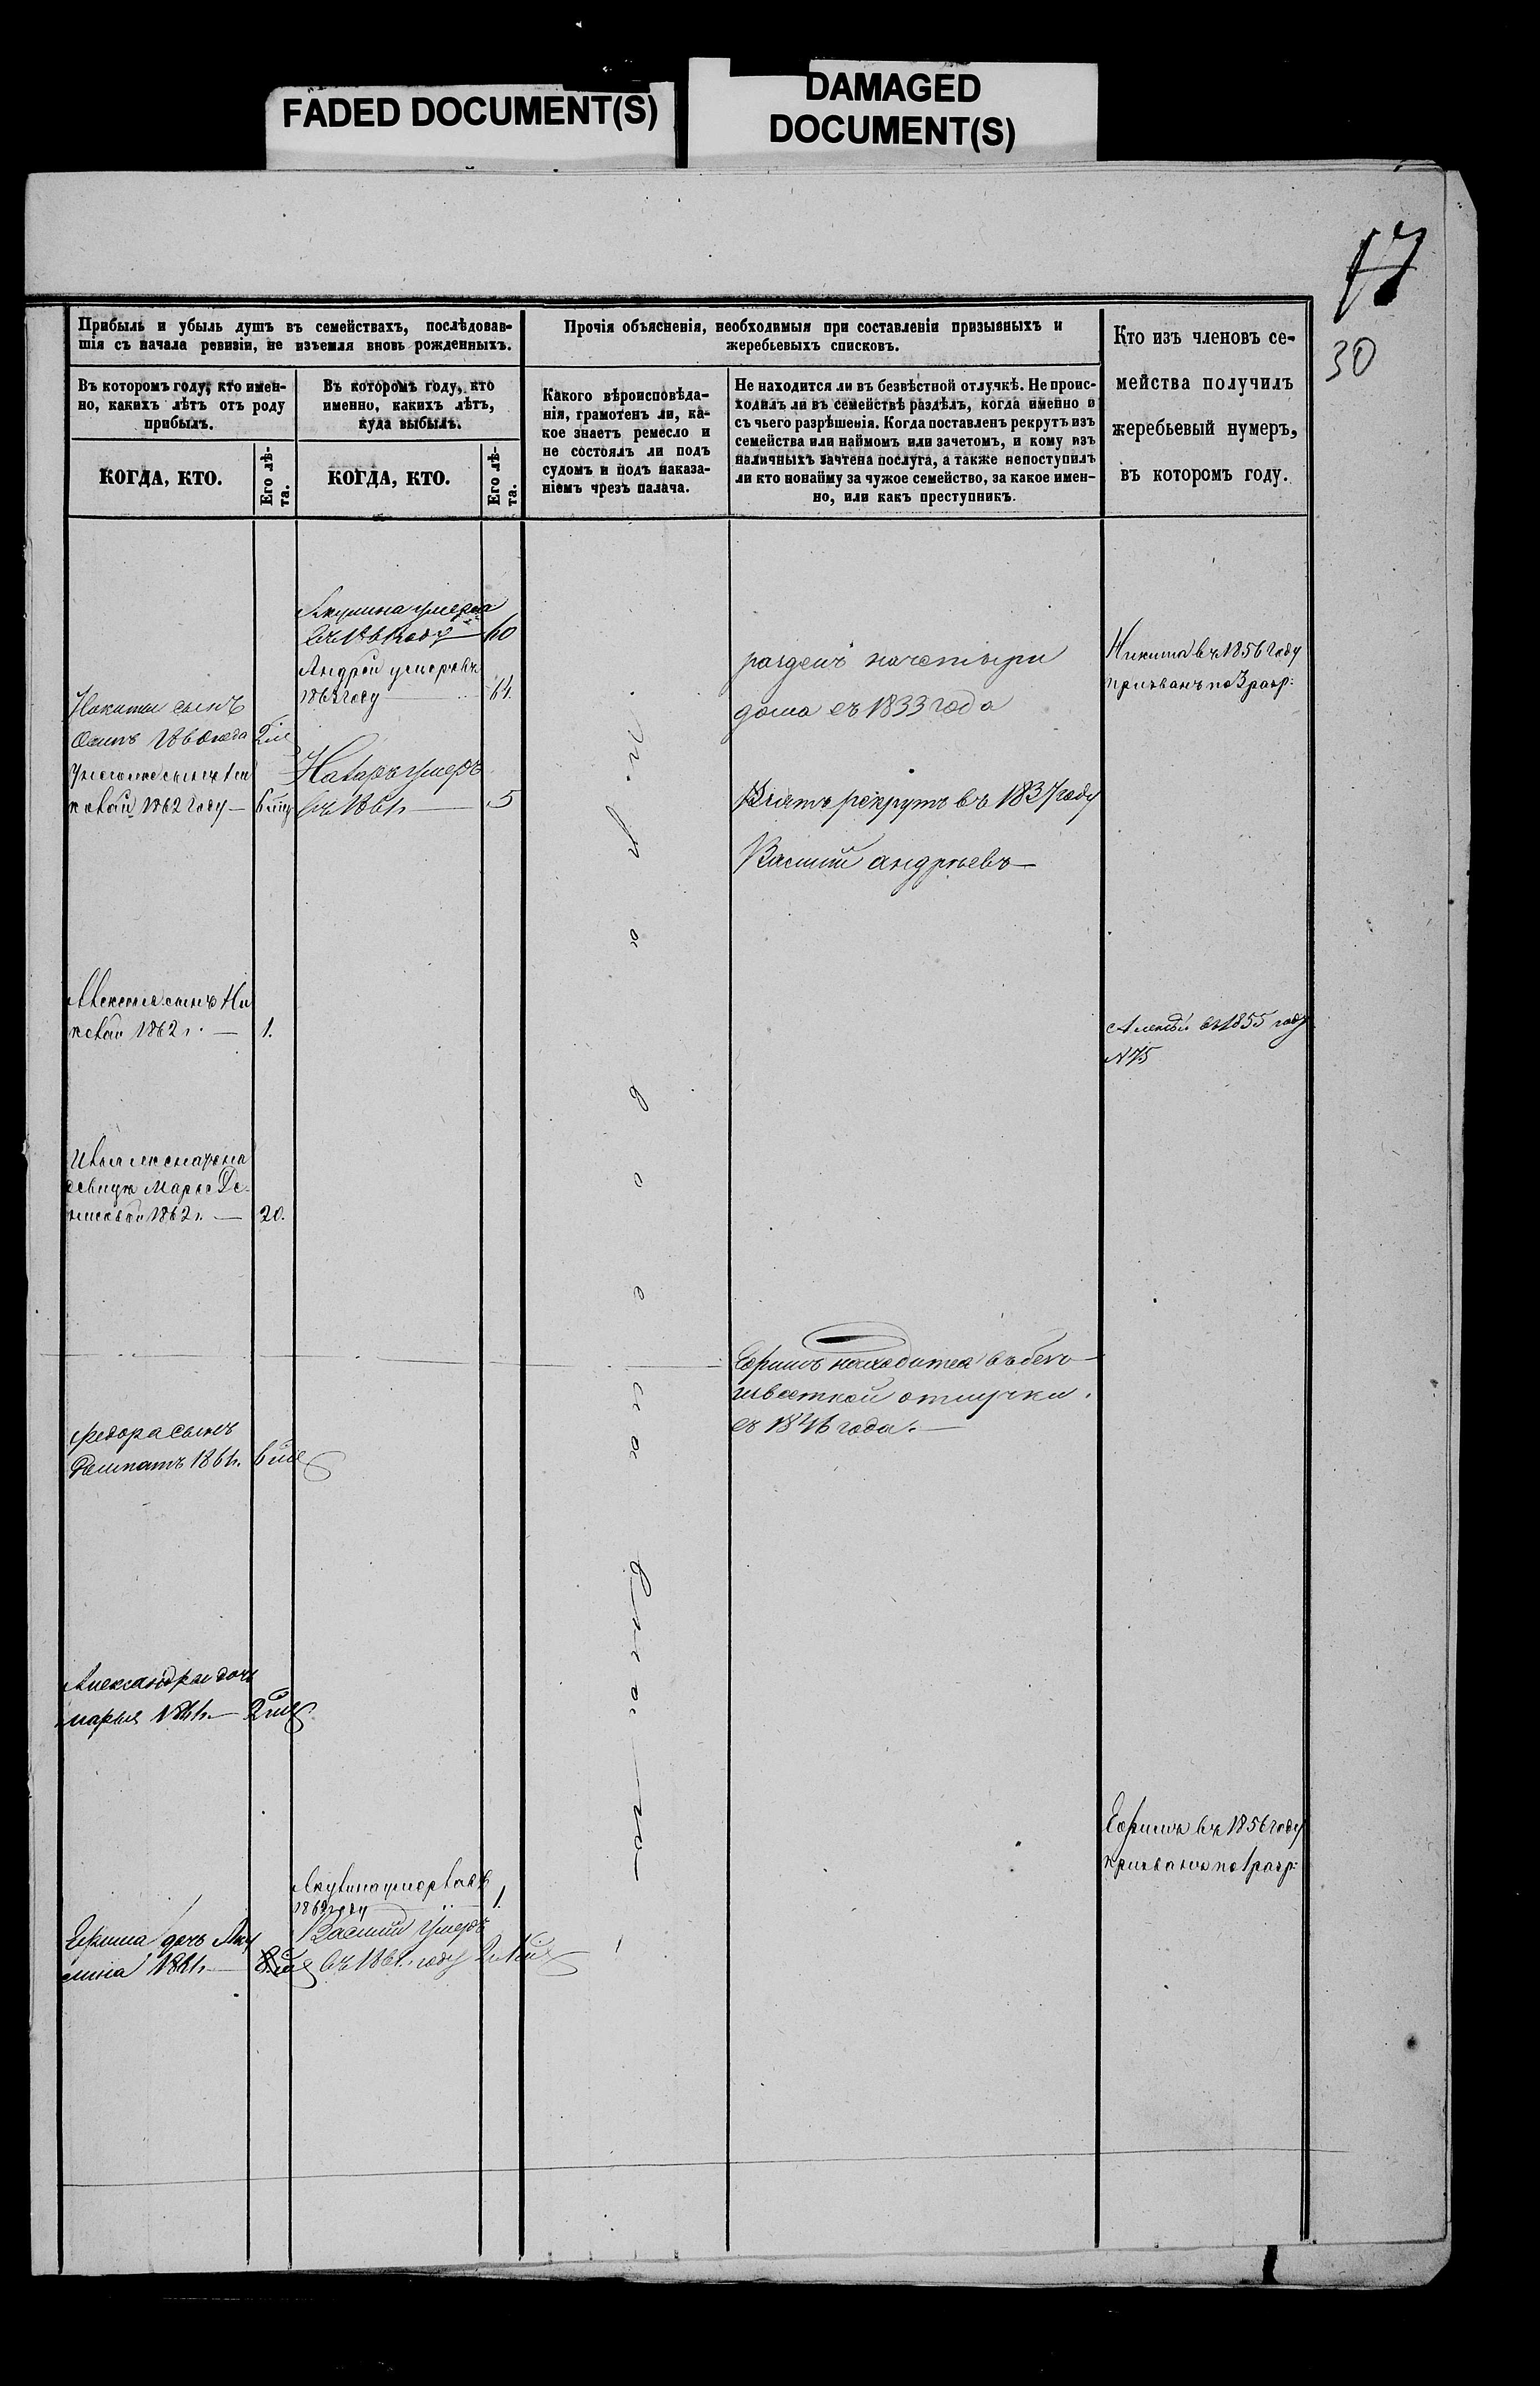 FADED DOCUMENT(S)
DAMAGED
DOCUMENT(S)
17
30
Прибыль и убыль душъ въ семействахъ, послѣдовав-
шія съ начала ревизіи, не изъемля вновь рожденныхъ.
Въ которомъ году, кто имен-
но, какихъ лѣтъ отъ роду
прибылъ.
КОГДА, КТО.
Его лѣ-
та.
Въ которомъ году, кто
именно, какихъ лѣтъ,
куда выбылъ.
КОГДА, КТО.
Его лѣ-
та.
Прочія объясненія, необходимыя при составленіи призывныхъ и
жеребьевыхъ списковъ.
Какого вѣроисповѣда-
нія, грамотенъ ли, ка-
кое знаетъ ремесло и
не состоялъ ли подъ
судомъ и подъ наказа-
ніемъ чрезъ палача.
Не находится ли въ безвѣстной отлучкѣ. Не проис-
ходилъ ли въ семействѣ раздѣлъ, когда именно и
съ чьего разрѣшенія. Когда поставленъ рекрутъ изъ
семейства или наймомъ или зачетомъ, и кому изъ
наличныхъ зачтена послуга, а также непоступилъ
ли кто понайму за чужое семейство, за какое имен-
но, или какъ преступникъ.
Кто изъ членовъ се-
мейства получилъ
жеребьевый нумеръ,
въ которомъ году.
Никиты сынъ
Осипъ
1862 году —
Алексея сынъ Ни
1862 г. — 1.
девица Марья Де-
1862 г. — 20.
Федора сынъ
1861 г.
Александры дочь
марья 1861 г. —
Ефима дочь Аку
лина 1861 г. —
Акулина умерла
60
Андрей умеръ въ
1862 году — 61.
Назаръ умеръ
въ 1861 г. — 5
1862 году — 1.
Василий умеръ
въ 1861 г. году
П р а в о с л а в н а г о
разделъ на четыри
дома съ 1833 года
Взятъ рекрутъ въ 1837 году
Василий андреевъ —
Ефимъ находится въ без-
известной отлучки.
съ 1846 года. —
Никита въ 1856 году
призванъ по 3 разр:
Алексѣй въ 1855 году
N 75
Ефимъ въ 1856 году
призванъ по 1 разр: